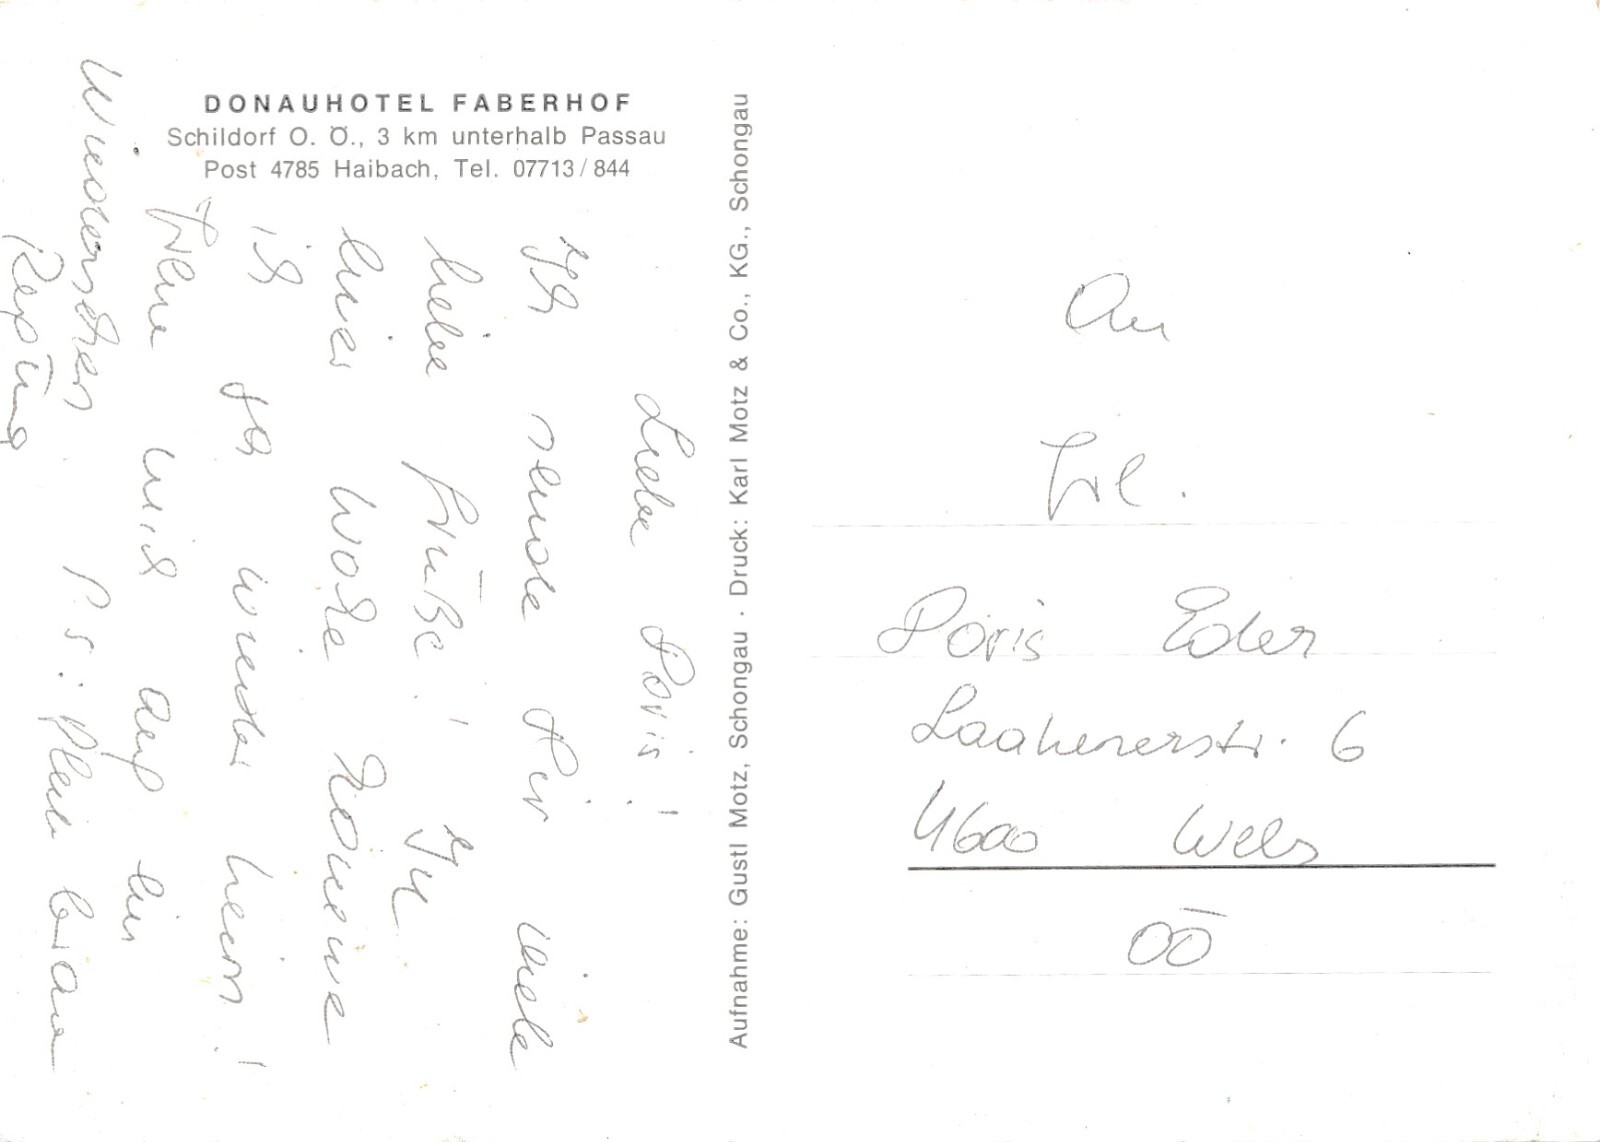 DONAUHOTEL FABERHOF
Schildorf O. Ö., 3 km unterhalb Passau
Post 4785 Haibach, Tel. 07713/844
Liebe Doris!
Ich sende Dir viele
liebe Grüße! In
einer Woche komme
ich wieder heim!
Freue mich auf ein
Wiedersehen P.S.: Bleib brav
Aufnahme: Gustl Motz, Schongau · Druck: Karl Motz & Co., KG., Schongau
An
Frl.
Doris Eder
Laahenerstr. 6
4600 Wels
OÖ